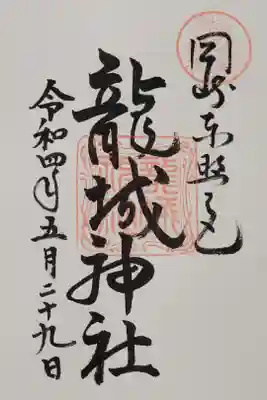 岡崎東照宮
龍城神社
令和四年五月二十九日